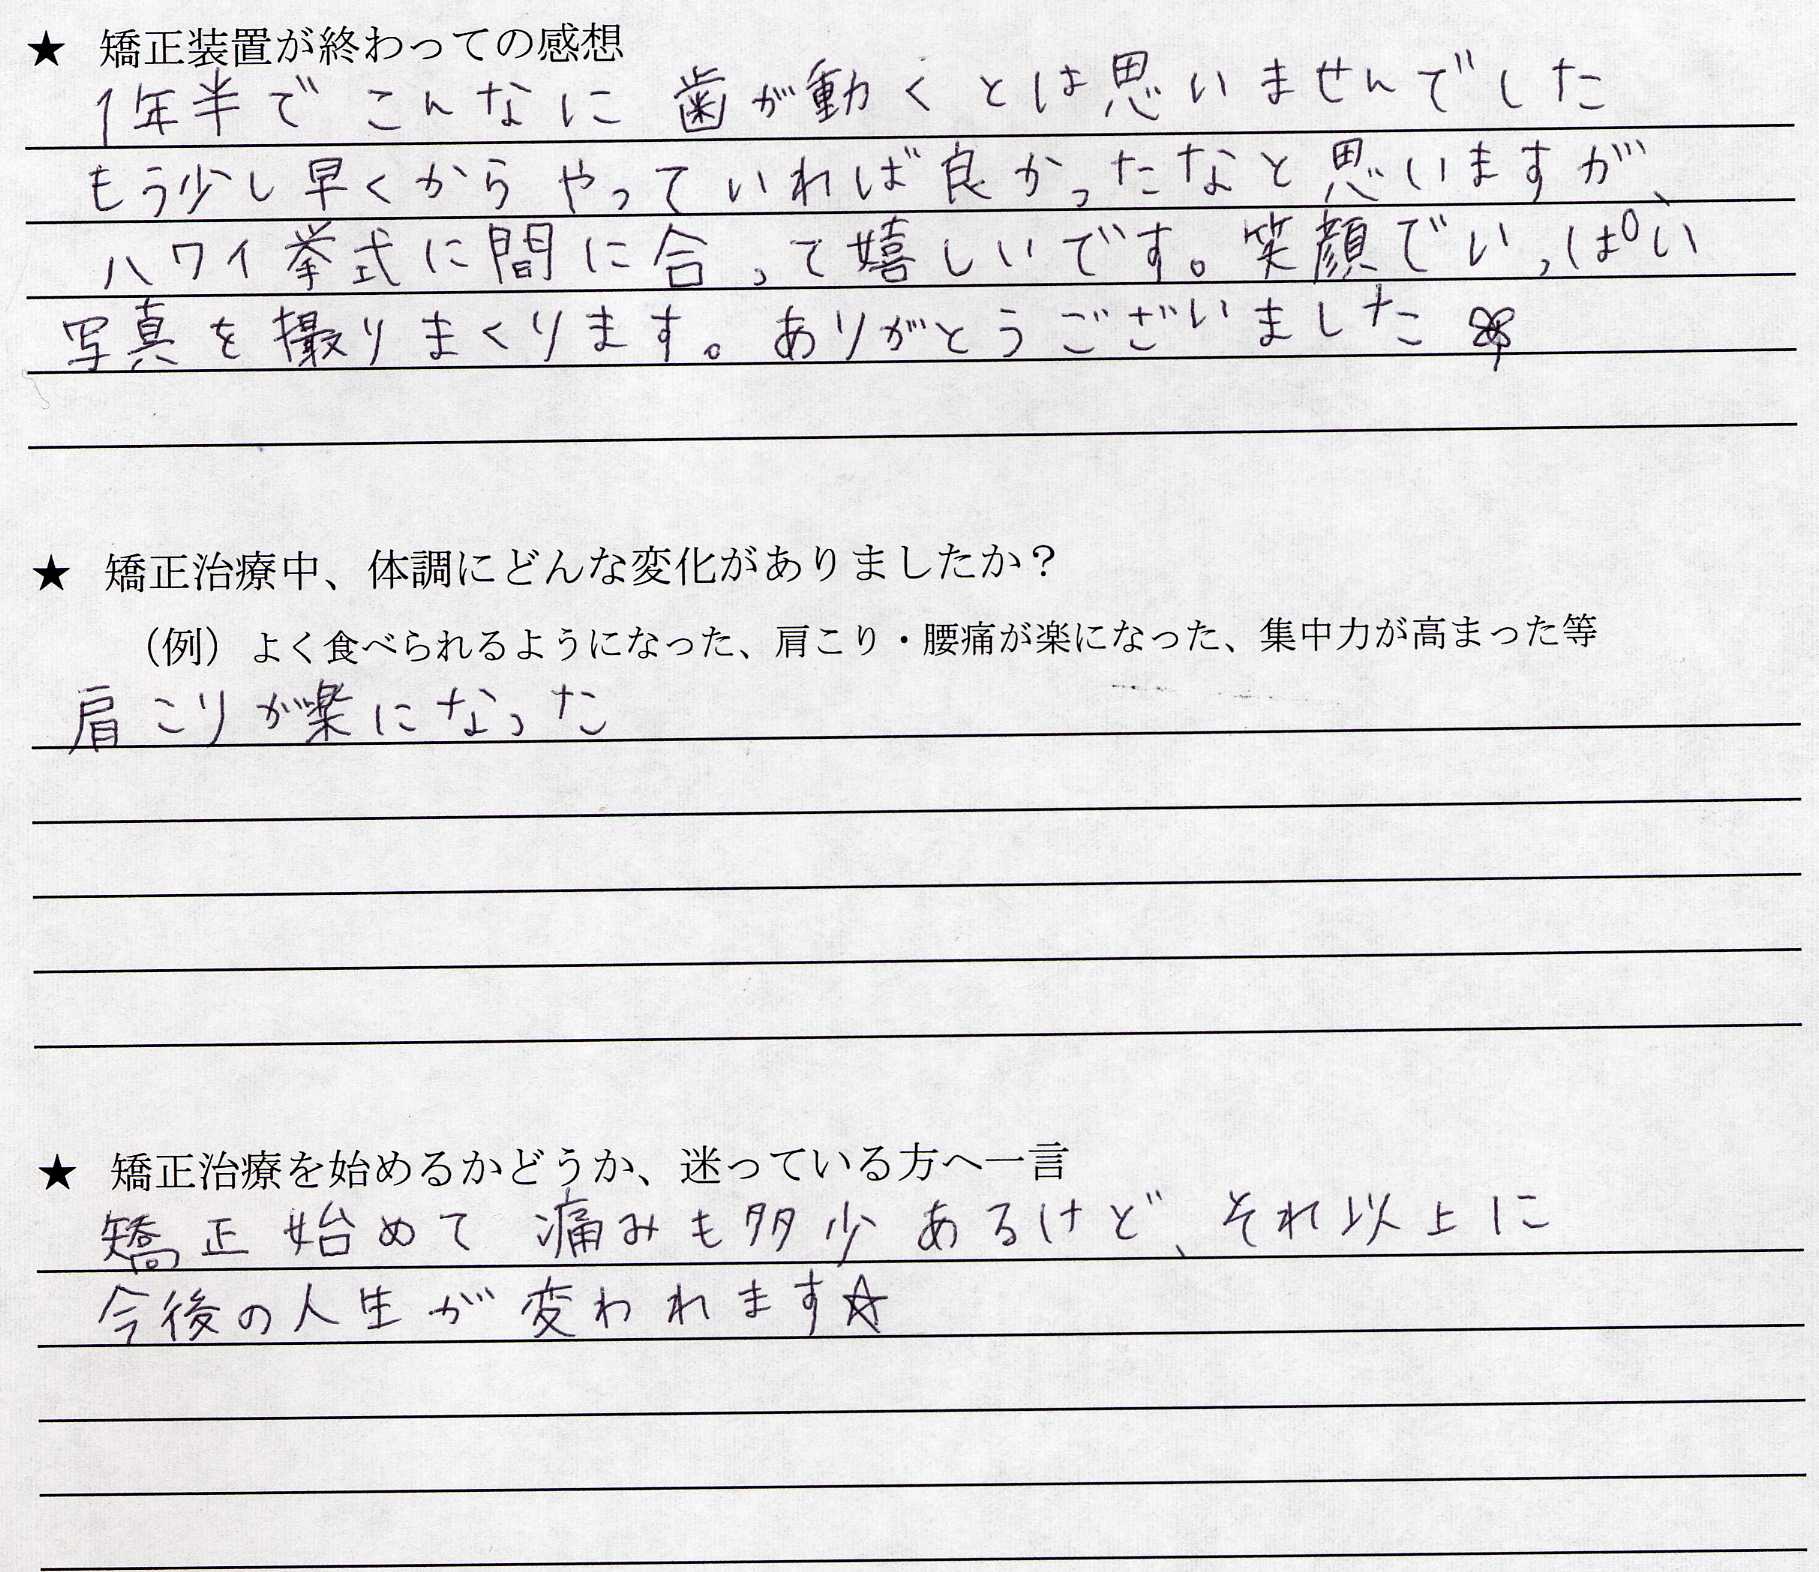 ★ 矯正装置が終わっての感想
1年半で こんなに 歯が動くとは思いませんでした
もう少し早くから やっていれば良かったなと思いますが、
ハワイ挙式に間に合って嬉しいです。笑顔でいっぱい
写真を撮りまくります。ありがとうございました
★ 矯正治療中、体調にどんな変化がありましたか？
（例）よく食べられるようになった、肩こり・腰痛が楽になった、集中力が高まった等
肩こりが楽になった
★ 矯正治療を始めるかどうか、迷っている方へ一言
矯正始めて 痛みも多少あるけど、それ以上に
今後の人生が変われます☆